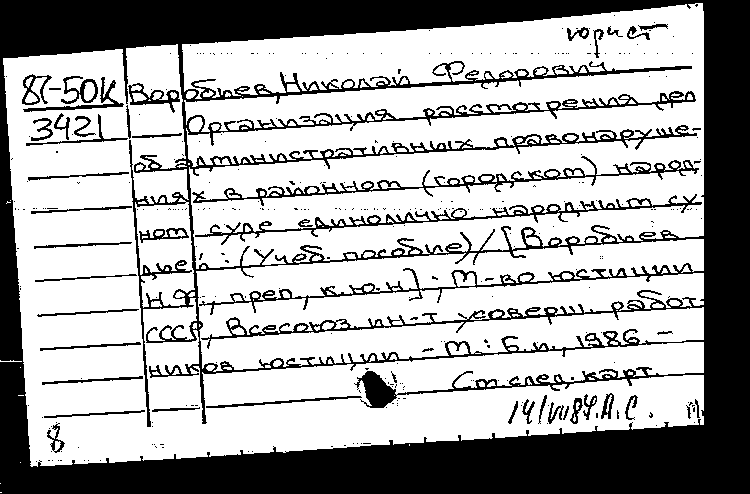 юрист
87-50К Воробьев, Николай Федорович.
3421 Организация рассмотрения дел
об административных правонаруше-
ниях в районном (городском) народ-
ном суде единолично народным су-
дьей : (Учеб. пособие) / [Воробьев
Н.Ф., преп., к.ю.н] ; М-во юстиции
СССР, Всесоюз. ин-т усоверш. работ-
ников юстиции. - М. : Б.и., 1986. -
См. след. карт.
8